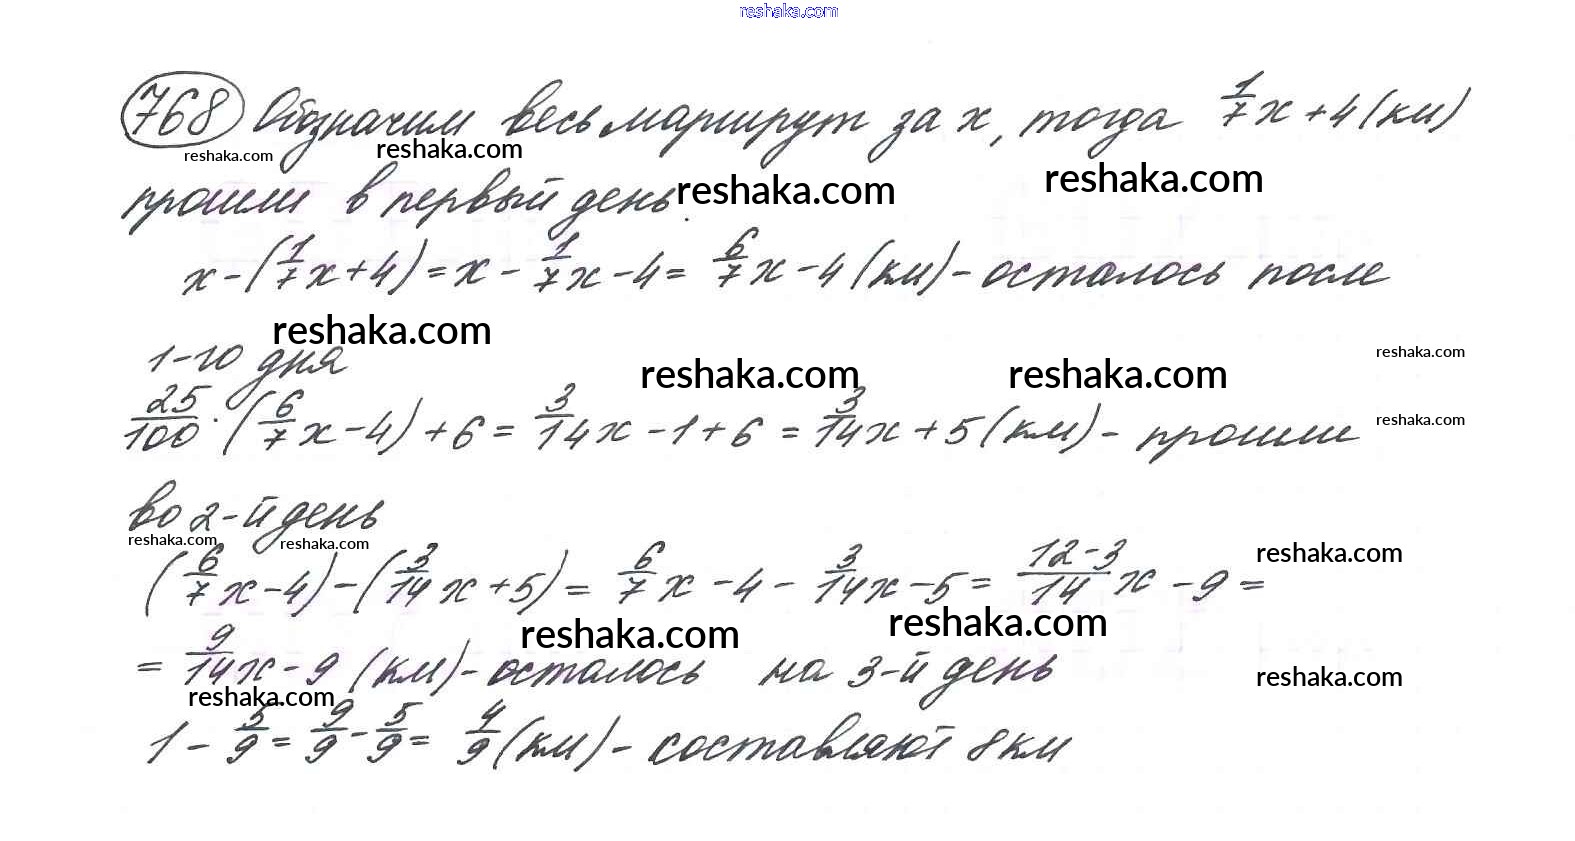 reshaka.com
768 Обозначим весь маршрут за x, тогда 1/7 x + 4 (км)
reshaka.com reshaka.com
прошли в первый день. reshaka.com reshaka.com
x - (1/7 x + 4) = x - 1/7 x - 4 = 6/7 x - 4 (км) - осталось после
reshaka.com
1-го дня reshaka.com reshaka.com reshaka.com
25/100 · (6/7 x - 4) + 6 = 3/14 x - 1 + 6 = 3/14 x + 5 (км) - прошли reshaka.com
во 2-й день
reshaka.com reshaka.com reshaka.com
(6/7 x - 4) - (3/14 x + 5) = 6/7 x - 4 - 3/14 x - 5 = 12-3/14 x - 9 =
reshaka.com reshaka.com
= 9/14 x - 9 (км) - осталось на 3-й день reshaka.com
reshaka.com
1 - 5/9 = 9/9 - 5/9 = 4/9 (км) - составляют 8 км